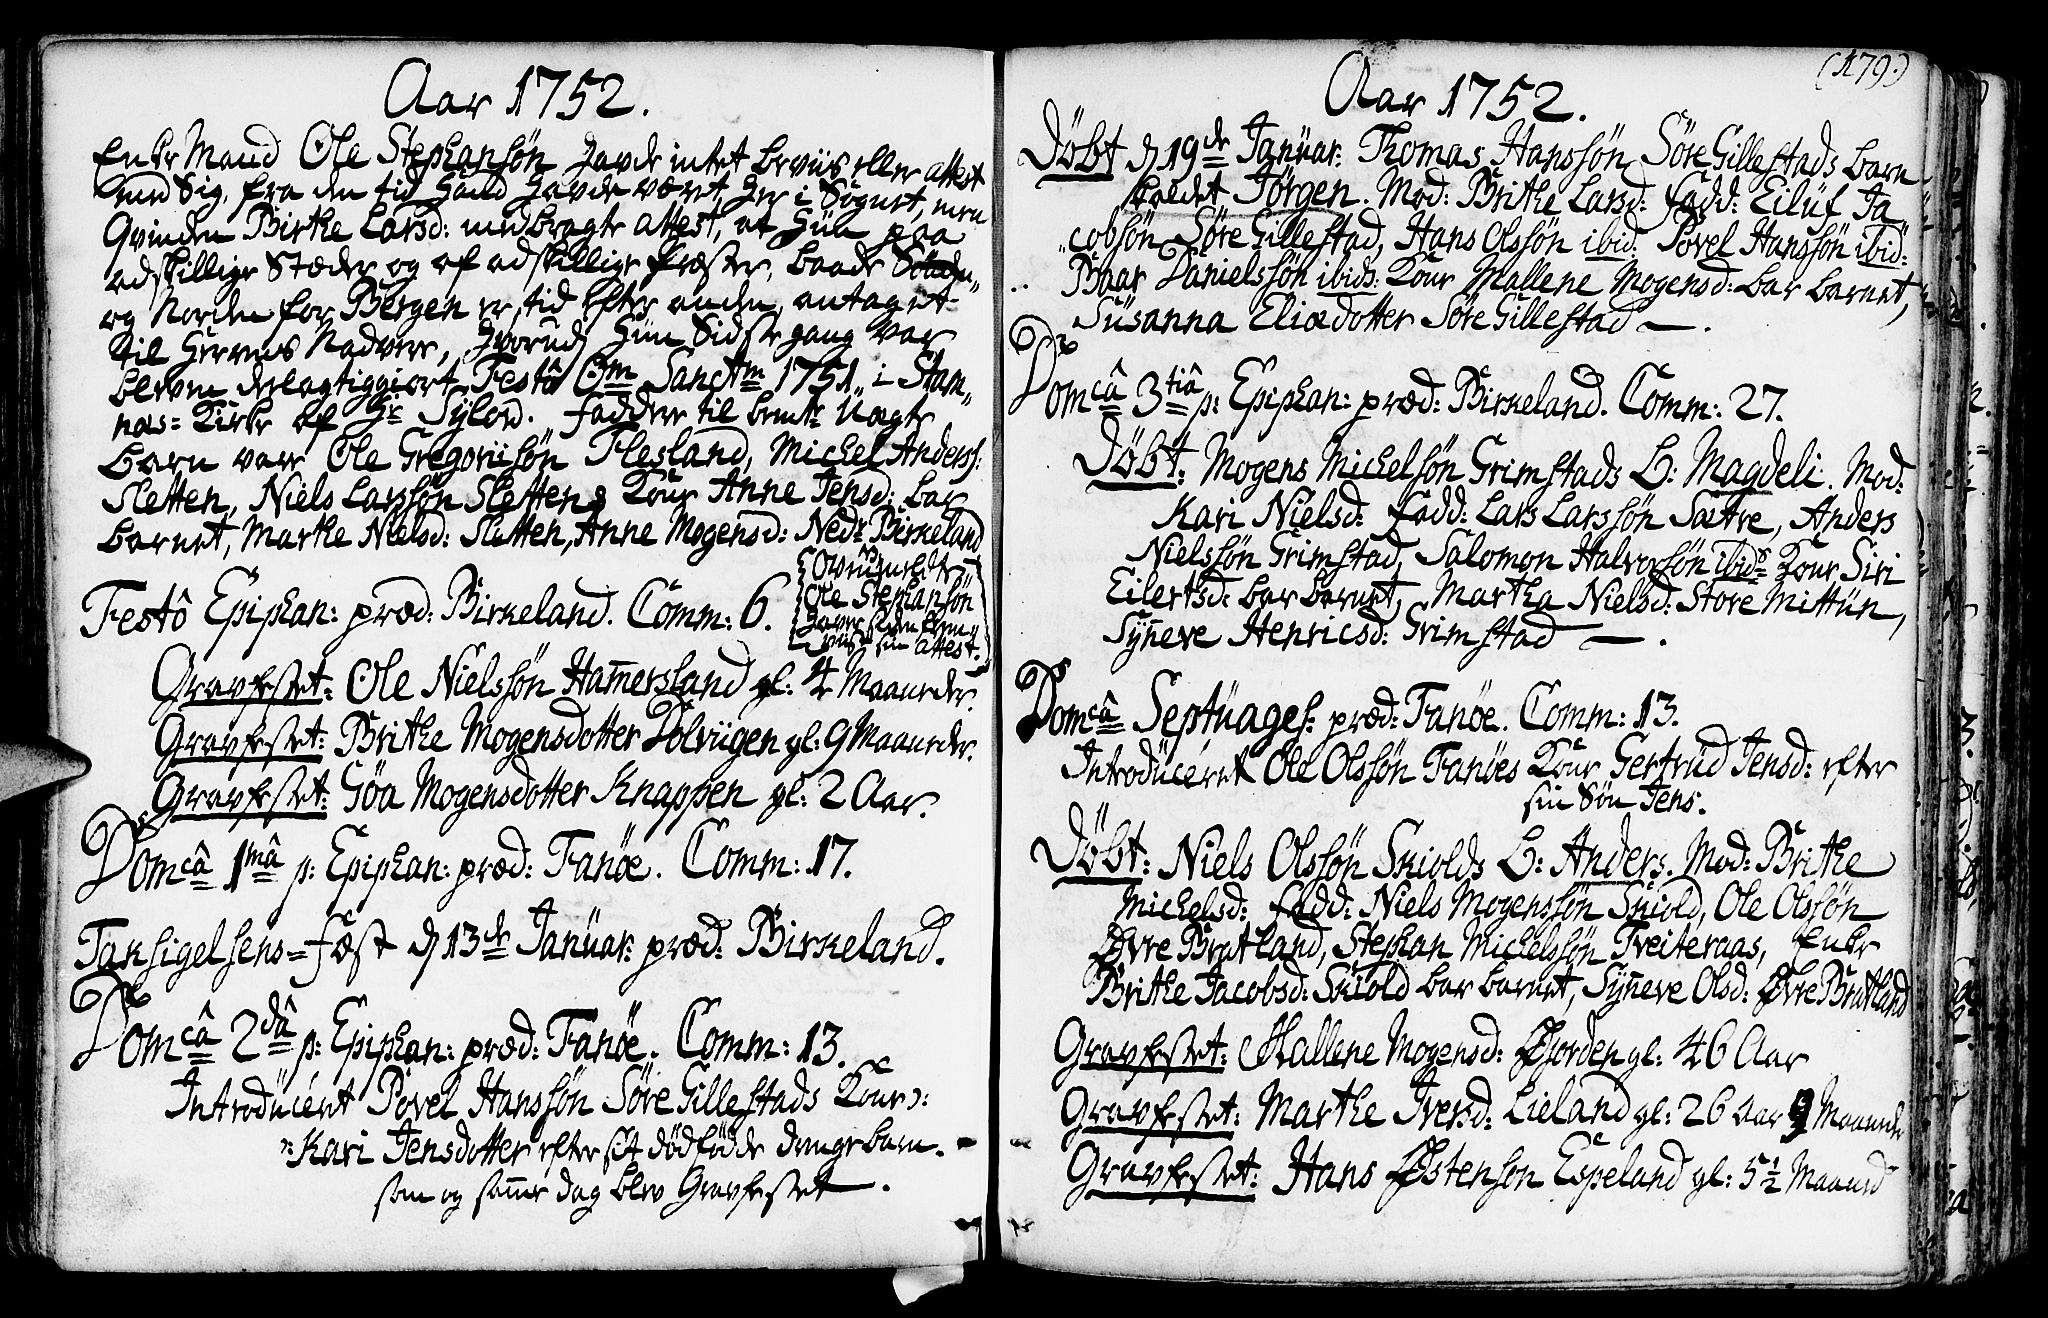 Aar 1752.
Enke Mand Ole Stephansön havde intet beviis eller attest
med Sig, fra den tid Hand havde været her i Sognet, men
Qvinden Birthe Larsd: medbragte attest, at Hun paa
adskillige Stæder og af adskillige Præster, baade Sönden"
og Norden for Bergen er, tid efter anden, antaget
til Herrens Nadvere, hvorud Hun Sidste gang var
bleven delagtiggiort Festô Om̄ Sanctm 1751 i Stam„
næs=Kirke af Hr Sylow. Fadder til bemte Uægte
Barn vare Ole Gregoriisön Flesland, Michel Anderss:
Sletten, Niels Larssön Sletten, Kour Anne Jensd: bar
Barnet, Marthe Nielsd: Sletten, Anne Mogensd: Nedr Birkeland
Ovenmeldte
Ole Stephansön
haver siden frem„
viist sin attest.
Festô Epiphan: præd: Birkeland. Comm: 6.
Gravfestet: Ole Nielssön Ham̄ersland gl: 4 Maaneder.
Gravfestet: Brithe Mogensdotter Dolviigen gl: 9 Maaneder.
Gravfestet: Göa Mogensdotter Knappen gl: 2 Aar.
Domcâ 1mâ p: Epiphan: præd: Fanöe. Comm: 17.
Taksigelsens=Fæst d 13de Januar: præd: Birkeland.
Domcâ 2dâ p: Epiphan: præd: Fanöe. Comm: 13.
Introduceret Povel Hanssön Söre Gillestads Kour:
Kari Jensdotter efter sit dödfödde drengebarn.
som og sam̄e dag blev Gravfestet.
(179.)
Aar 1752.
Döbt d 19de Januar: Thomas Hanssön Söre Gillestads barn
kaldet Jörgen. Mod: Brithe Larsd: fadd: Eiluf Ja„
„cobsön Söre Gillestad, Hans Olssön ibid: Povel Hanssön ibid:
Baar Danielssön ibids: Kour Mallene Mogensd: bar barnet,
Susanna Eliædotter Söre Gillestad.
Domcâ 3tiâ p: Epiphan: præd: Birkeland. Comm: 27.
Döbt: Mogens Michelsön Grimstads B: Magdeli. Mod:
Kari Nielsd: Fadd: Lars Larssön Sætre, Anders
Nielssön Grimstad, Salomon Halvorsön ibids Kour Siri
Eilertsd: bar barnet, Martha Nielsd: Store Mittun,
Syn̄eve Henricsd: Grimstad.
Domcâ Septuages: præd: Fanöe. Comm: 13.
Introduceret Ole Olssön Fanöes Kour Gertrud Jensd: efter
sin Sön Jens.
Döbt: Niels Olssön Skiolds B: Anders. Mod: Brithe
Michelsd: Fadd: Niels Mogenssön Skiold, Ole Olssön
Øvre Bratland, Stephan Michelssön Tveiteraas, Enke
Brithe Jacobsd: Skiold bar barnet, Syn̄eve Olsd: Øvre Bratland
Gravfestet: Mallene Mogensd: Øjorden gl: 46 Aar
Gravfestet: Marthe Iversd: Lieland gl: 26 Aar 9 Maaned
Gravfestet: Hans Østensön Espeland gl: 5½ Maaned